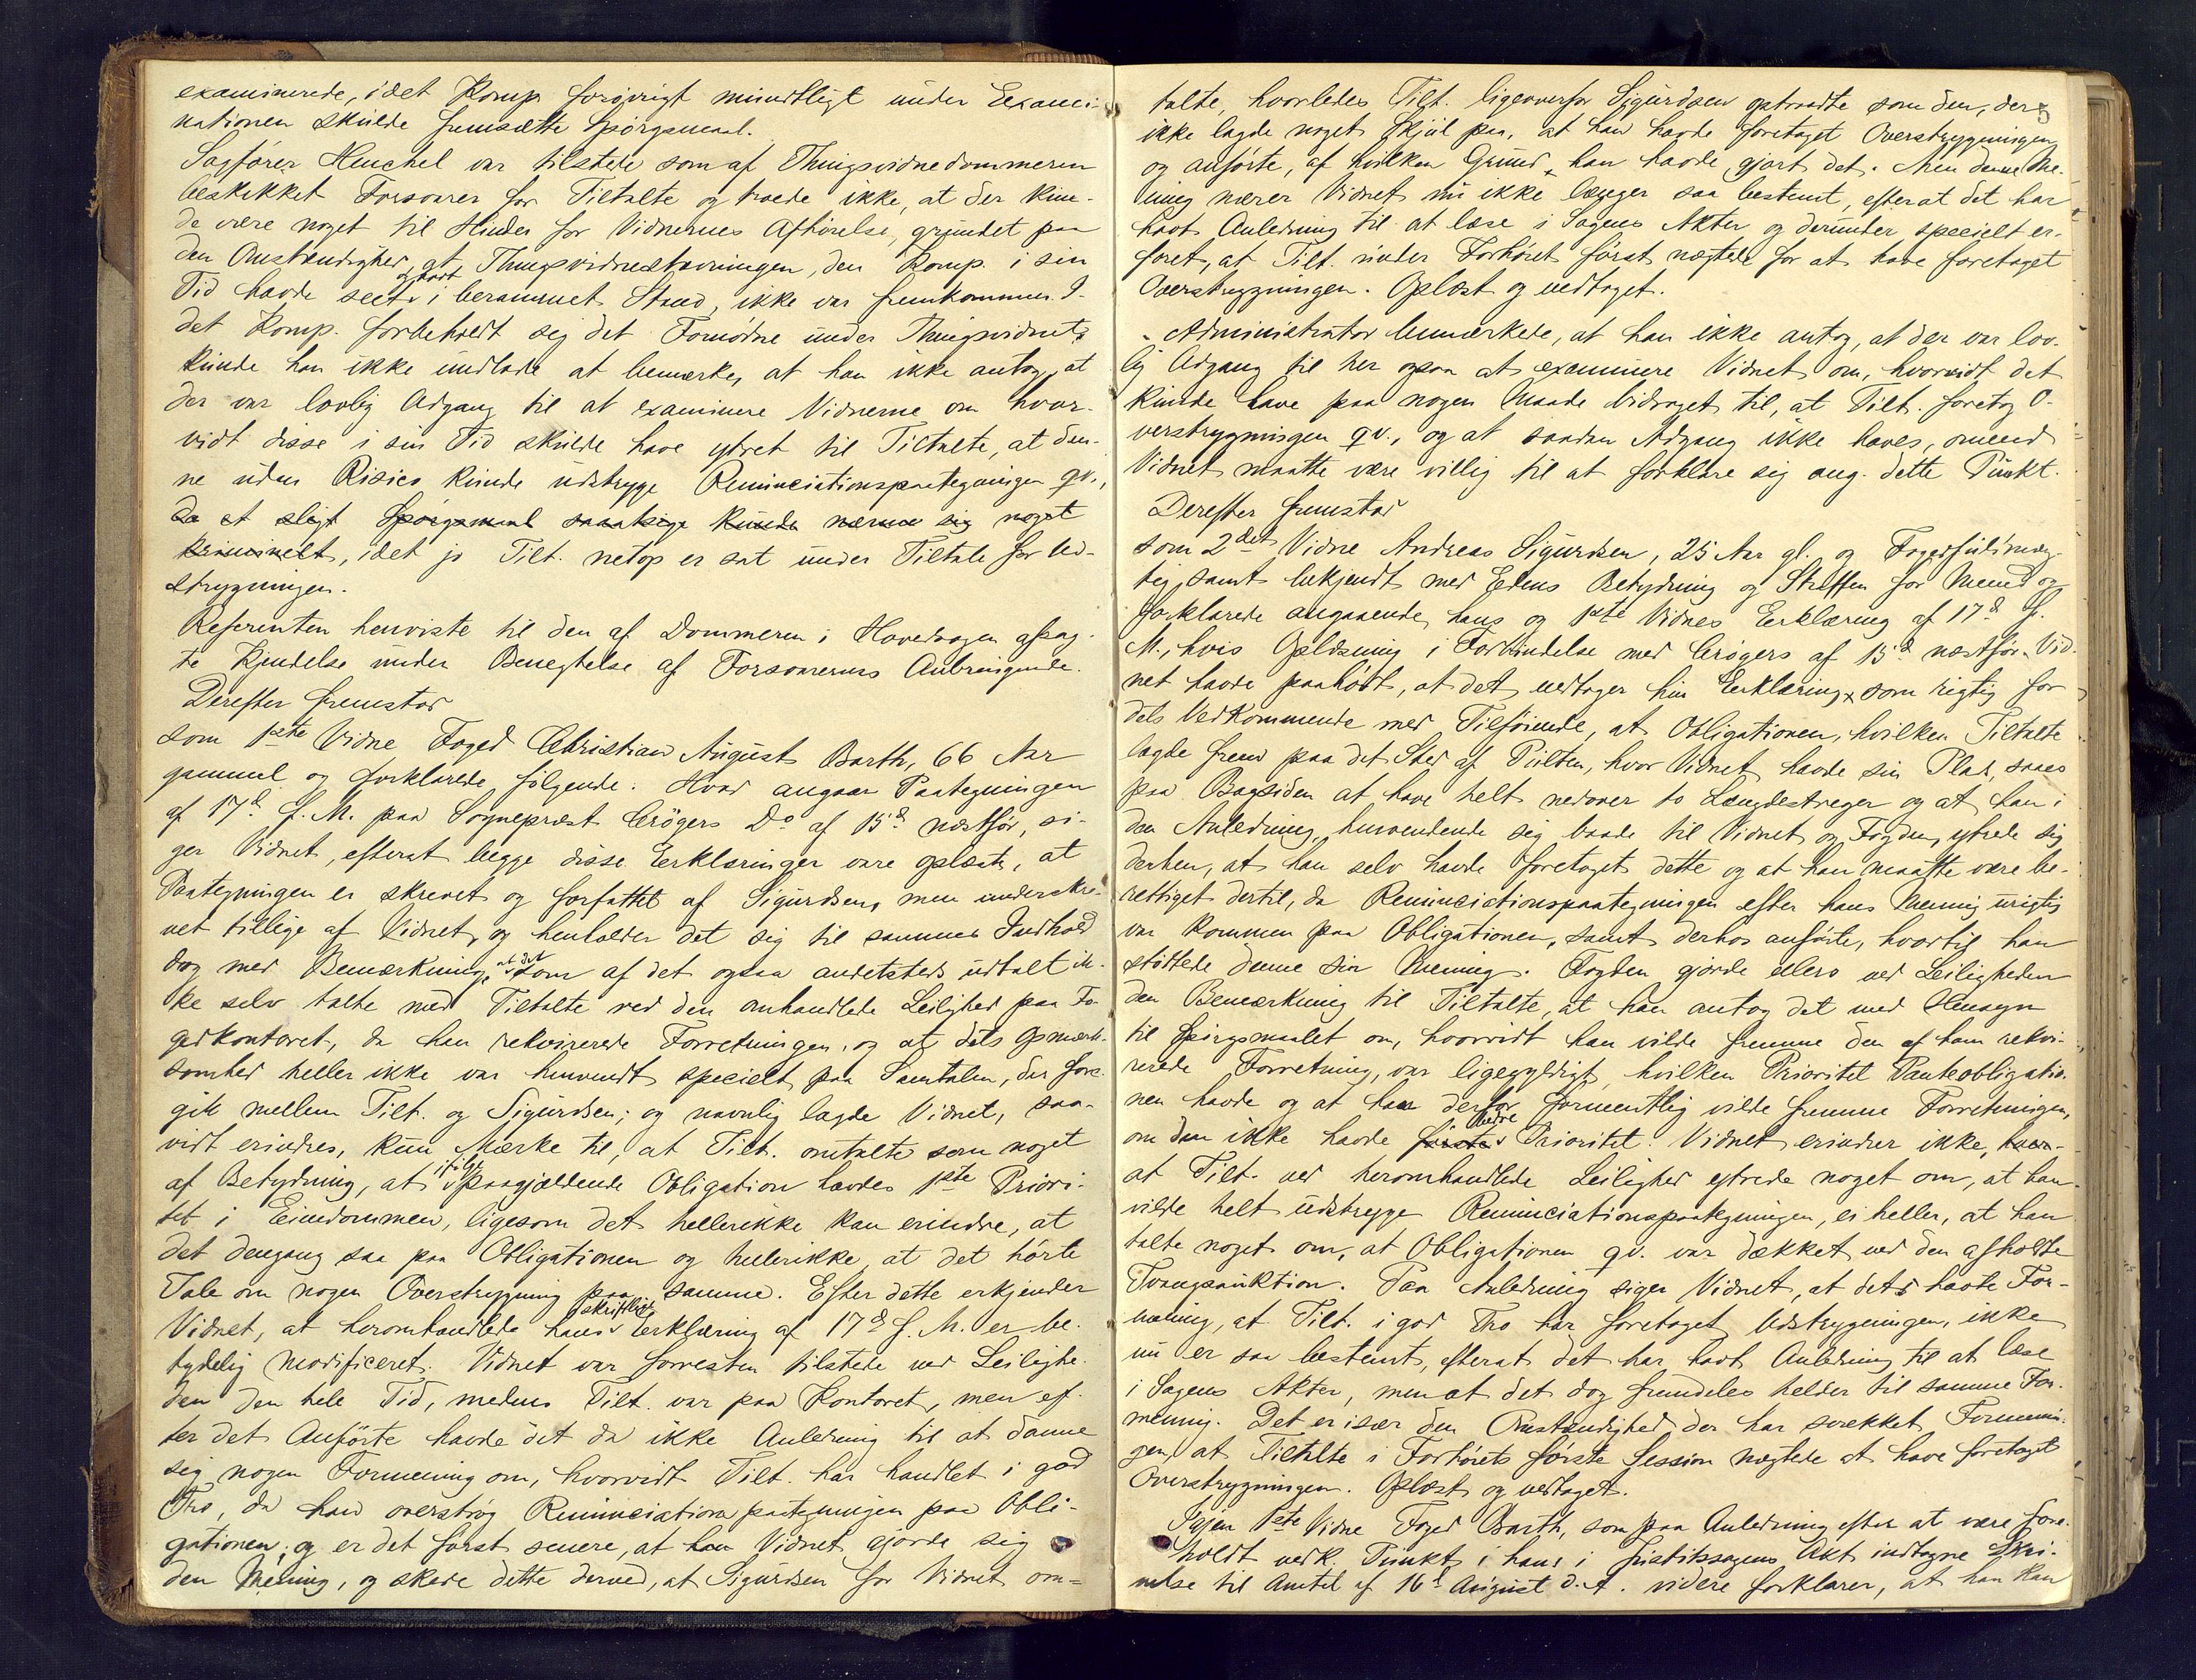 examinerede, idet Komp. forøvrigt mundtligt under Exami-
nationen skulde fremsætte Spørgsmaal.
Sagfører Henchel var tilstede som af Thingsvidnedommeren
beskikket Forsvarer for Tiltalte og troede ikke, at der kun-
de være noget til Hinder for Vidnernes Afhørelse, grundet paa
den Omstændighed, at Thingsvidnestævningen, den Komp. i sin
Tid havde seet og hørt i berammet Stand, ikke var fremkommen. I-
det Komp. forbeholdt sig det Fornødne under Thingsvidnet,
kunde han ikke undlade at bemærke, at han ikke antog, at
der var lovlig Adgang til at examinere Vidnerne om hvor-
vidt disse i sin Tid skulde have ytret til Tiltalte, at den-
ne uden Risico kunde udstryge Renunciationspaategningen qv.,
da et sligt Spørgsmaal saavatsige kunde nærme sig noget
kriminelt, idet jo Tilt. netop er sat under Tiltale for Ud-
strygningen.
Referenten henviste til den af Dommeren i Hovedsagen afsag-
te Kjendelse under Benegtelse af Forsvarerens Anbringende.
Derefter fremstod
som 1ste Vidne Foged Christian August Barth, 66 Aar
gammel og forklarede følgende: Hvad angaar Paategningen
af 17d. f. M. paa Sognepræst Crøgers Do af 15d. næstfør, si-
ger Vidnet, efterat begge disse Erklæringer vare oplæste, at
Paategningen er skrevet og forfattet af Sigurdsen, men underskre-
vet tillige af Vidnet, og henholder det sig til sammes Indhold
dog med Bemærkning, at det som af det ogsaa andetsteds udtalt ik-
ke selv talte med Tiltalte ved den omhandlede Leilighed paa Fo-
gedkontoret, da han rekvirerede Forretningen, og at dets Opmærk-
somhed heller ikke var henvendt specielt paa Samtalen, der fore-
gik mellem Tilt. og Sigurdsen; og navnlig lagde Vidnet, saa-
vidt erindres, kun Mærke til, at Tilt. omtalte som noget
af Betydning, at ifølge paagjældende Obligation havdes 1ste Priori-
tet i Eiendommen, ligesom det hellerikke kan erindre, at
det dengang saa paa Obligationen og hellerikke at det hørte
Tale om nogen Overstrygning paa samme. Efter dette erkjender
Vidnet, at heromhandlede hans skriftlige Erklæring af 17d. f. M. er be-
tydelig modificeret. Vidnet var forresten tilstede ved Leilighe-
den den hele Tid, medens Tilt. var paa Kontoret, men ef-
ter det Anførte havde det da ikke Anledning til at danne
sig nogen Formening om, hvorvidt Tilt. har handlet i god
Tro, da han overstrøg Renunciationspaategningen paa Obli-
gationen; og er det først senere, at han Vidnet gjorde sig
den Mening, og skede dette derved, at Sigurdsen for Vidnet om-
talte, hvorledes Tilt. ligeoverfor Sigurdsen optraadte som den, der
ikke lagde noget Skjul paa, at han havde foretaget Overstrygningen
og anførte, af hvilken Grund han havde gjort det. Men denne Me-
ning nærer Vidnet nu ikke længer saa bestemt, efterat det har
havt Anledning til at læse i Sagens Akter og derunder specielt er-
faret, at Tilt. under Forhøret først nægtede for at have foretaget
Overstrygningen. Oplæst og vedtaget.
Administrator bemærkede, at han ikke antog, at der var lov-
lig Adgang til her ogsaa at examinere Vidnet om, hvorvidt det
kunde have paa nogen Maade bidraget til, at Tilt. foretog O-
verstrygningen qv., og at saadan Adgang ikke haves, omend
Vidnet maatte være villig til at forklare sig ang. dette Punkt.
Derefter fremstod
som 2det Vidne Andreas Sigurdsen, 25 Aar gl. og Fogedfuldmæg-
tig, samt bekjendt med Edens Betydning og Straffen for Meened og
forklarede angaaende hans og 1ste Vidnes Erklæring af 17d. f.
M., hvis Oplæsning i Forbindelse med Crøgers af 15d. næstfør Vid-
net havde paahørt, at det vedtager hin Erklæring som rigtig for
dets Vedkommende med Tilføiende, at Obligationen, hvilken Tiltalte
lagde frem paa det Sted af Pulten, hvor Vidnet havde sin Plads, saaes
paa Bagsiden at have helt nedover to Længdestreger og at han i
den Anledning, henvendende sig baade til Vidnet og Fogden, ytrede sig
derhen, at han selv havde foretaget dette og at han maatte være be-
rettiget dertil, da Renunciationspaategningen efter hans Mening urigtig
var kommen paa Obligationen, samt derhos anførte, hvortil han
støttede denne sin Mening. Fogden gjorde ellers ved Leiligheden
den Bemærkning til Tiltalte, at han antog det med Hensyn
til Spørgsmaalet om, hvorvidt han vilde fremme den af ham rekvi-
rerede Forretning, var ligegyldigt, hvilken Prioritet Panteobligatio-
nen havde og at han derfor formentlig vilde fremme Forretningen,
om den ikke havde første bedre Prioritet. Vidnet erindrer ikke, hvor-
at Tilt. ved heromhandlede Leilighed ytrede noget om, at han
vilde helt udstryge Renunciationspaategningen, ei heller, at han
talte noget om, at Obligationen qv. var dækket ved den afholdte
Tvangsauktion. Paa Anledning siger Vidnet, at dets havte For-
mening, at Tilt. i god Tro har foretaget Udstrygningen, ikke
nu er saa bestemt, efterat det har havt Anledning til at læse
i Sagens Akter, men at det dog fremdeles helder til samme For-
mening. Det er især den Omstændighed, der har svækket Formenin-
gen, at Tiltalte i Forhørets første Session nægtede at have foretaget
Overstrygningen. Oplæst og vedtaget.
Igjen 1ste Vidne Foged Barth, som paa Anledning efter at være fore-
holdt vedk. Punkt i hans i Justitssagens Akt indtagne Skri-
velse til Amtet af 16d. August d. A. videre forklarer, at han kan